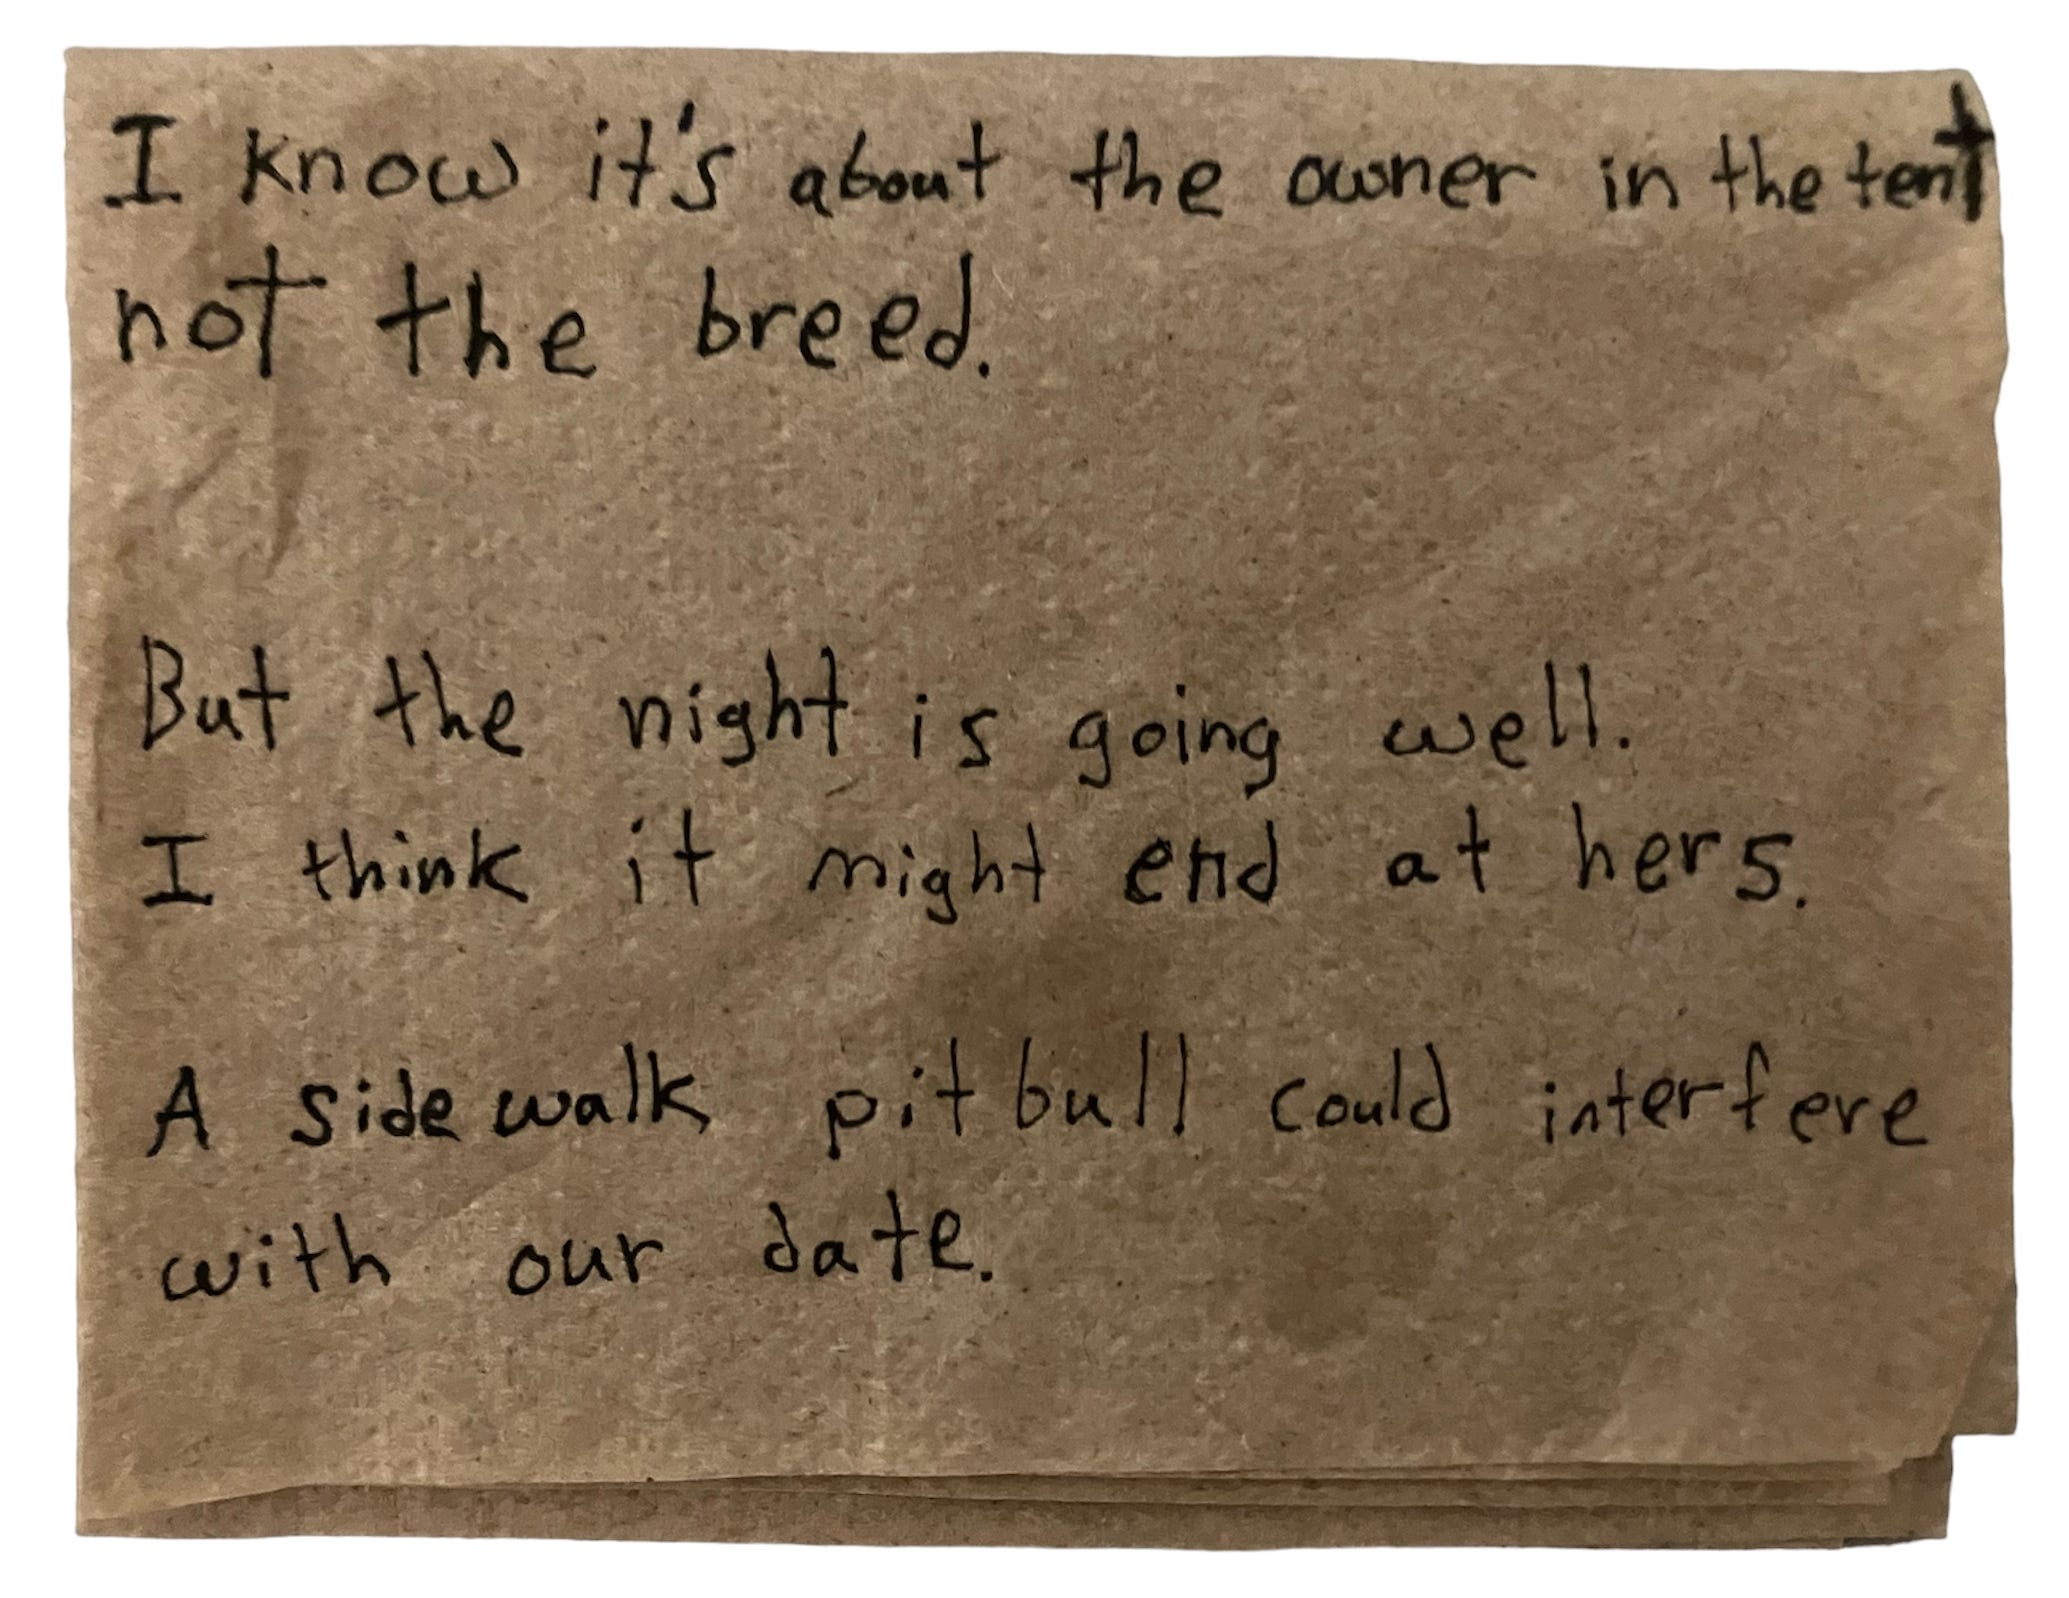 I know it's about the owner in the tent
not the breed.
But the night is going well.
I think it might end at hers.
A sidewalk pit bull could interfere
with our date.